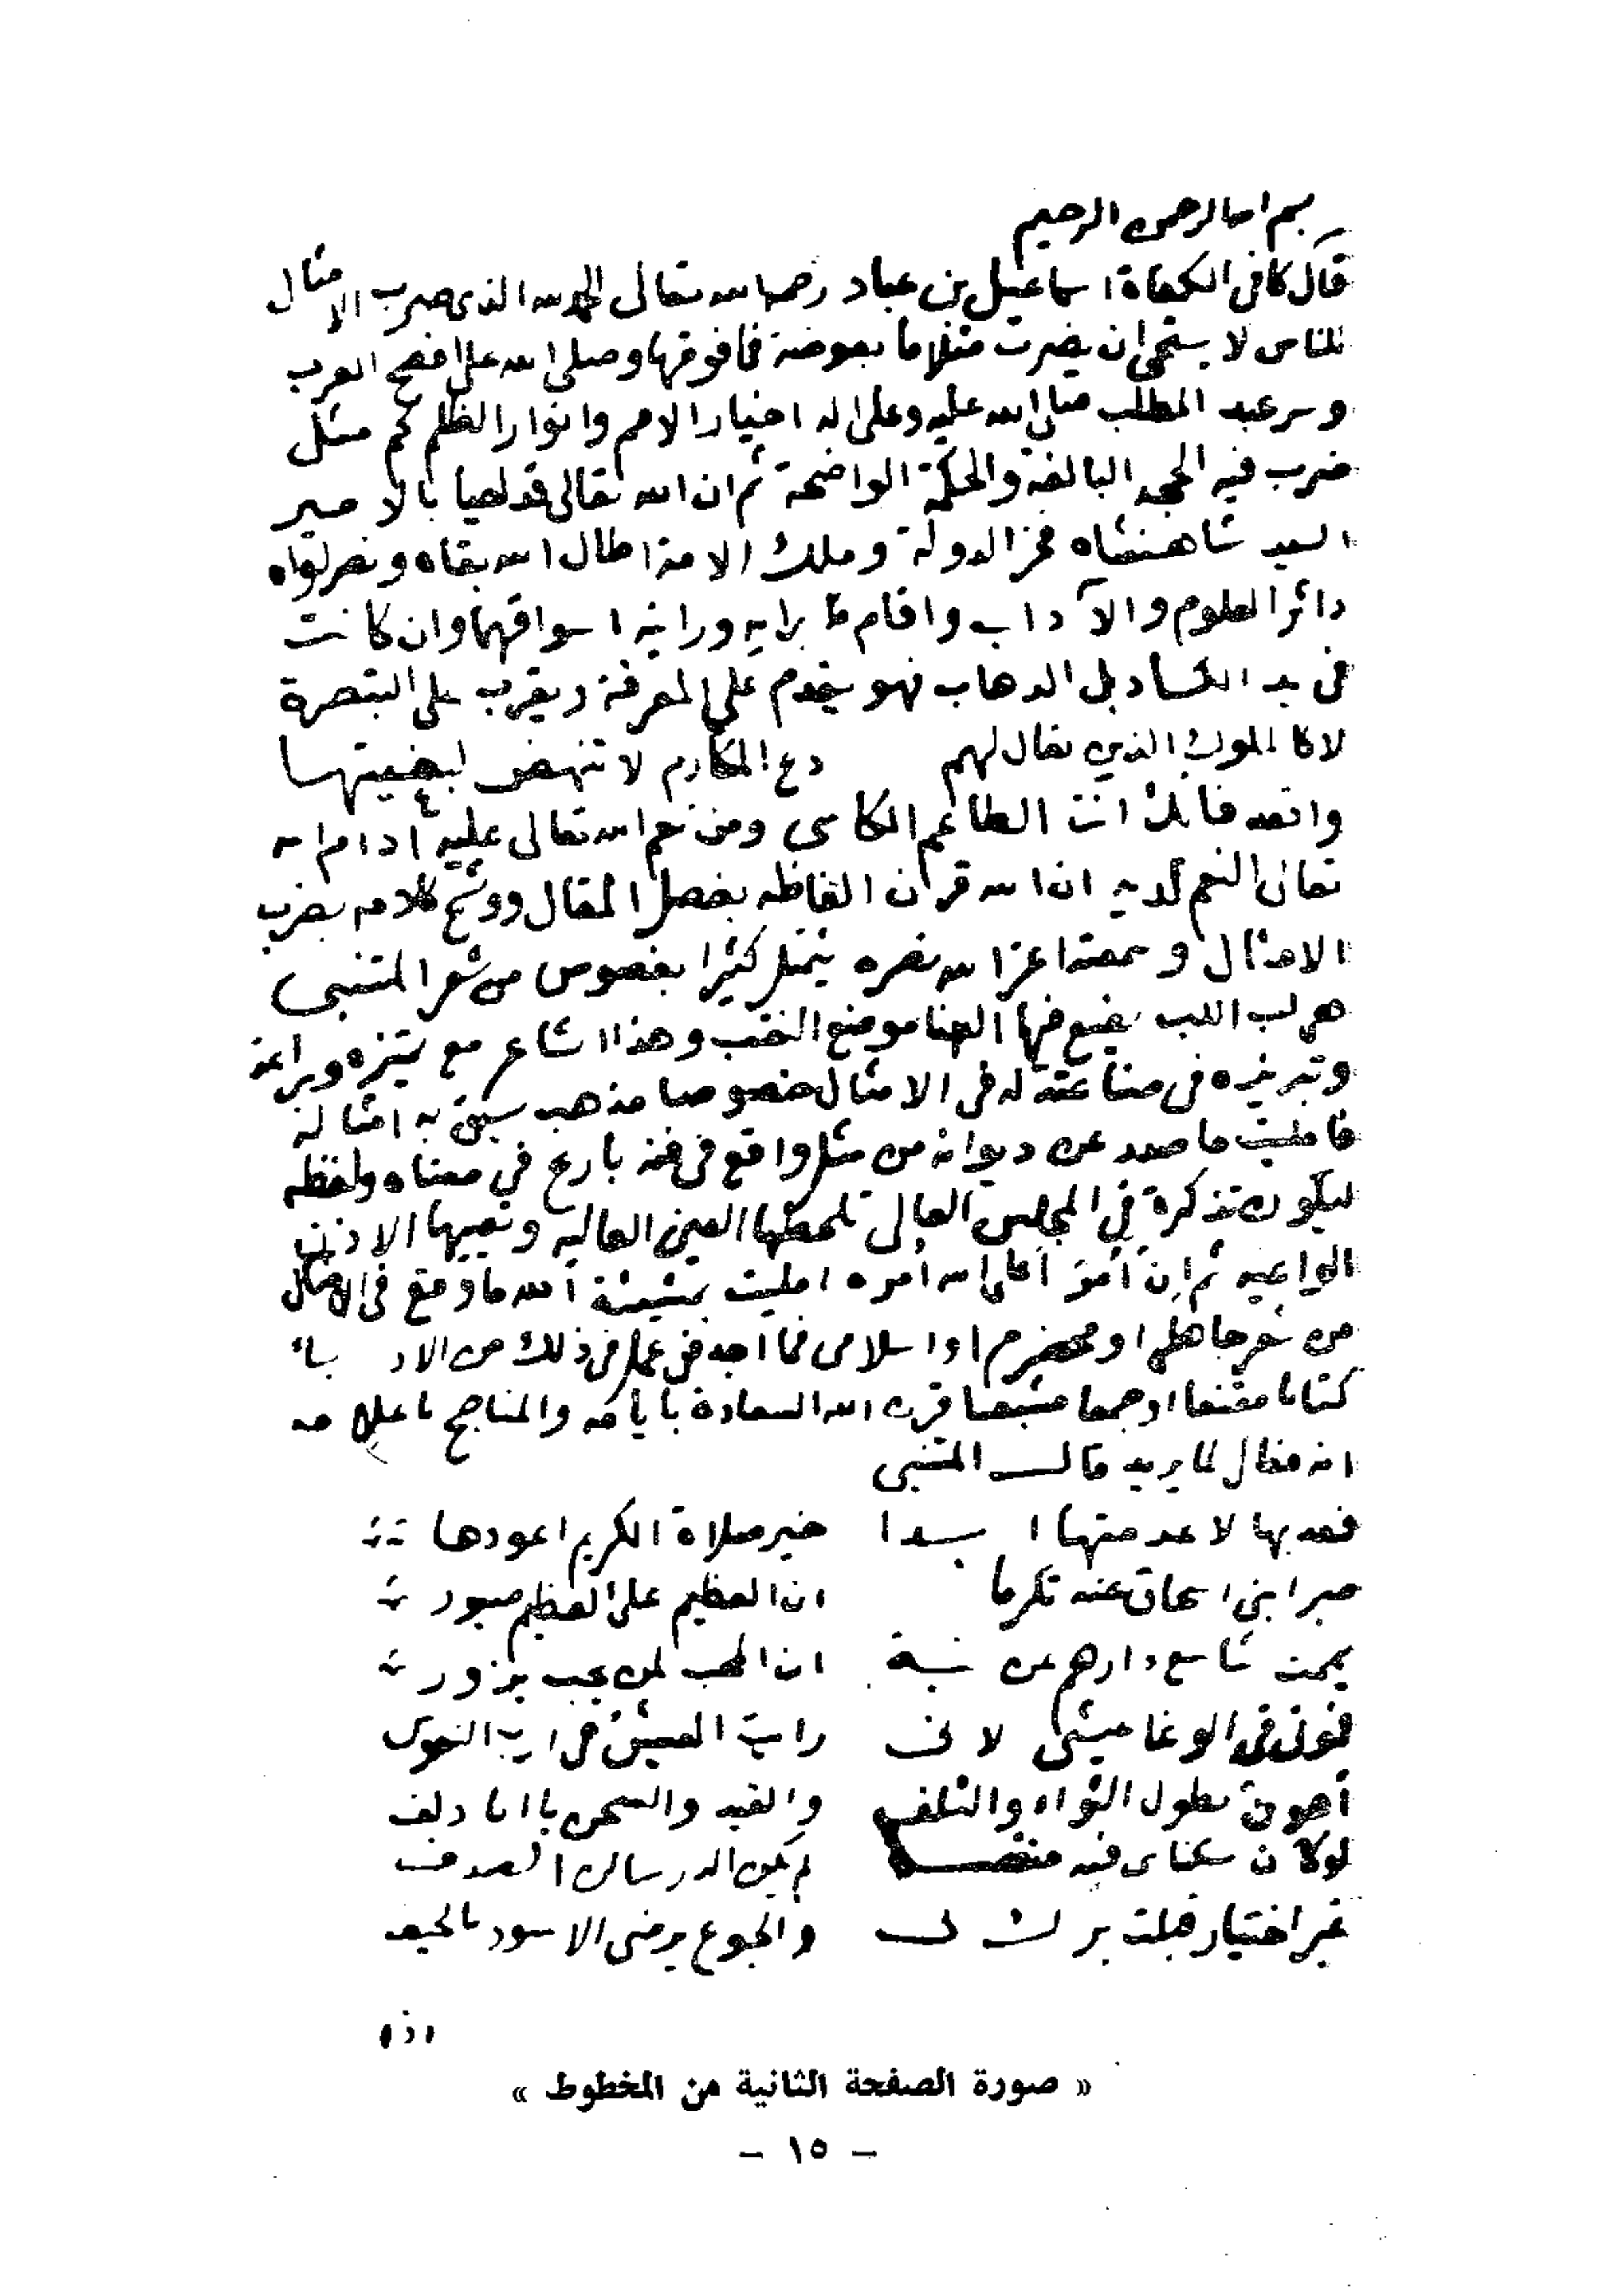 بسم الله الرحمن الرحيم
قال كافى الكفاة اسماعيل بن عباد رحمه الله تعالى الحمد لله الذى ضرب الامثال
للناس لا يستحى ان يضرب مثلا ما بعوضة فما فوقها وصلى الله على افصح العرب
وسر عبد المطلب صلى الله عليه وعلى اله اخيار الامم وانوار الظلم كم مثل
ضرب فيه الحجه البالغة والحكمة الواضحة ثم ان الله تعالى قد احيا بالامير
السيد شاهنشاه فخر الدولة وملك الامة اطال الله بقاه ونصر لواه
داثر العلوم والآداب واقام برايه ورايته اسواقهما وان كانت
فى يد الكساد بل الذهاب فهو يقدم على المعرفة ويقرب على التبصرة
لا كالملوك الذين يقال لهم دع المكارم لا تنهض لبغيتها
واقعد فانك انت الطاعم الكاسى ومن نعم الله تعالى عليه ادام الله
تعالى النعم لديه ان الله قرن الفاظه بفصل المقال ووشح كلامه بضرب
الامثال وسمعته اعز الله نصره يتمثل كثيرا بفصوص من شعر المتنبى
هى لب اللب يضع فيها الهنا موضع النقب وهذا الشاعر مع تميزه وبراعته
وتبريزه فى صناعته له فى الامثال خصوصا مذهب سبق به امثاله
فامليت ما صدر عن ديوانه من مثل واقع فى فنه بارع فى معناه ولفظه
ليكون تذكرة فى المجلس العالى تلحظها العين العاليه وتعيها الاذن
الواعيه ثم ان أمر أعلى الله أمره امليت بمشيئة الله ما وقع فى الامثال
من شعر جاهلى او مخضرم او اسلامى فما اجد من عمل فى ذلك من الادباء
كتابا مقنعا او جمعا مشبعا قرن الله السعادة بايامه والمناجح باعلامه
انه فعال لما يريد قال المتنبى
فعد بها لا عدمتها ابدا خير صلاة الكريم اعودها
صبرا بنى اسحاق عنه تكرما ان العظيم على العظيم صبور
يممت شاسع دارهم عن نية ان المحب لمن يحب يزور
فموتى فى الوغا عيشى لانى رايت العيش فى ارب النفوس
أهون بطول الثواء والتلف والقيد والسجن يا ابا دلف
لو كان سكناى فيه منقصة لم يكن الدر ساكن الصدف
غير اختيار قبلت برك لى والجوع يرضى الاسود بالجيف
اذا
« صورة الصفحة الثانية من المخطوط »
- ١٥ -